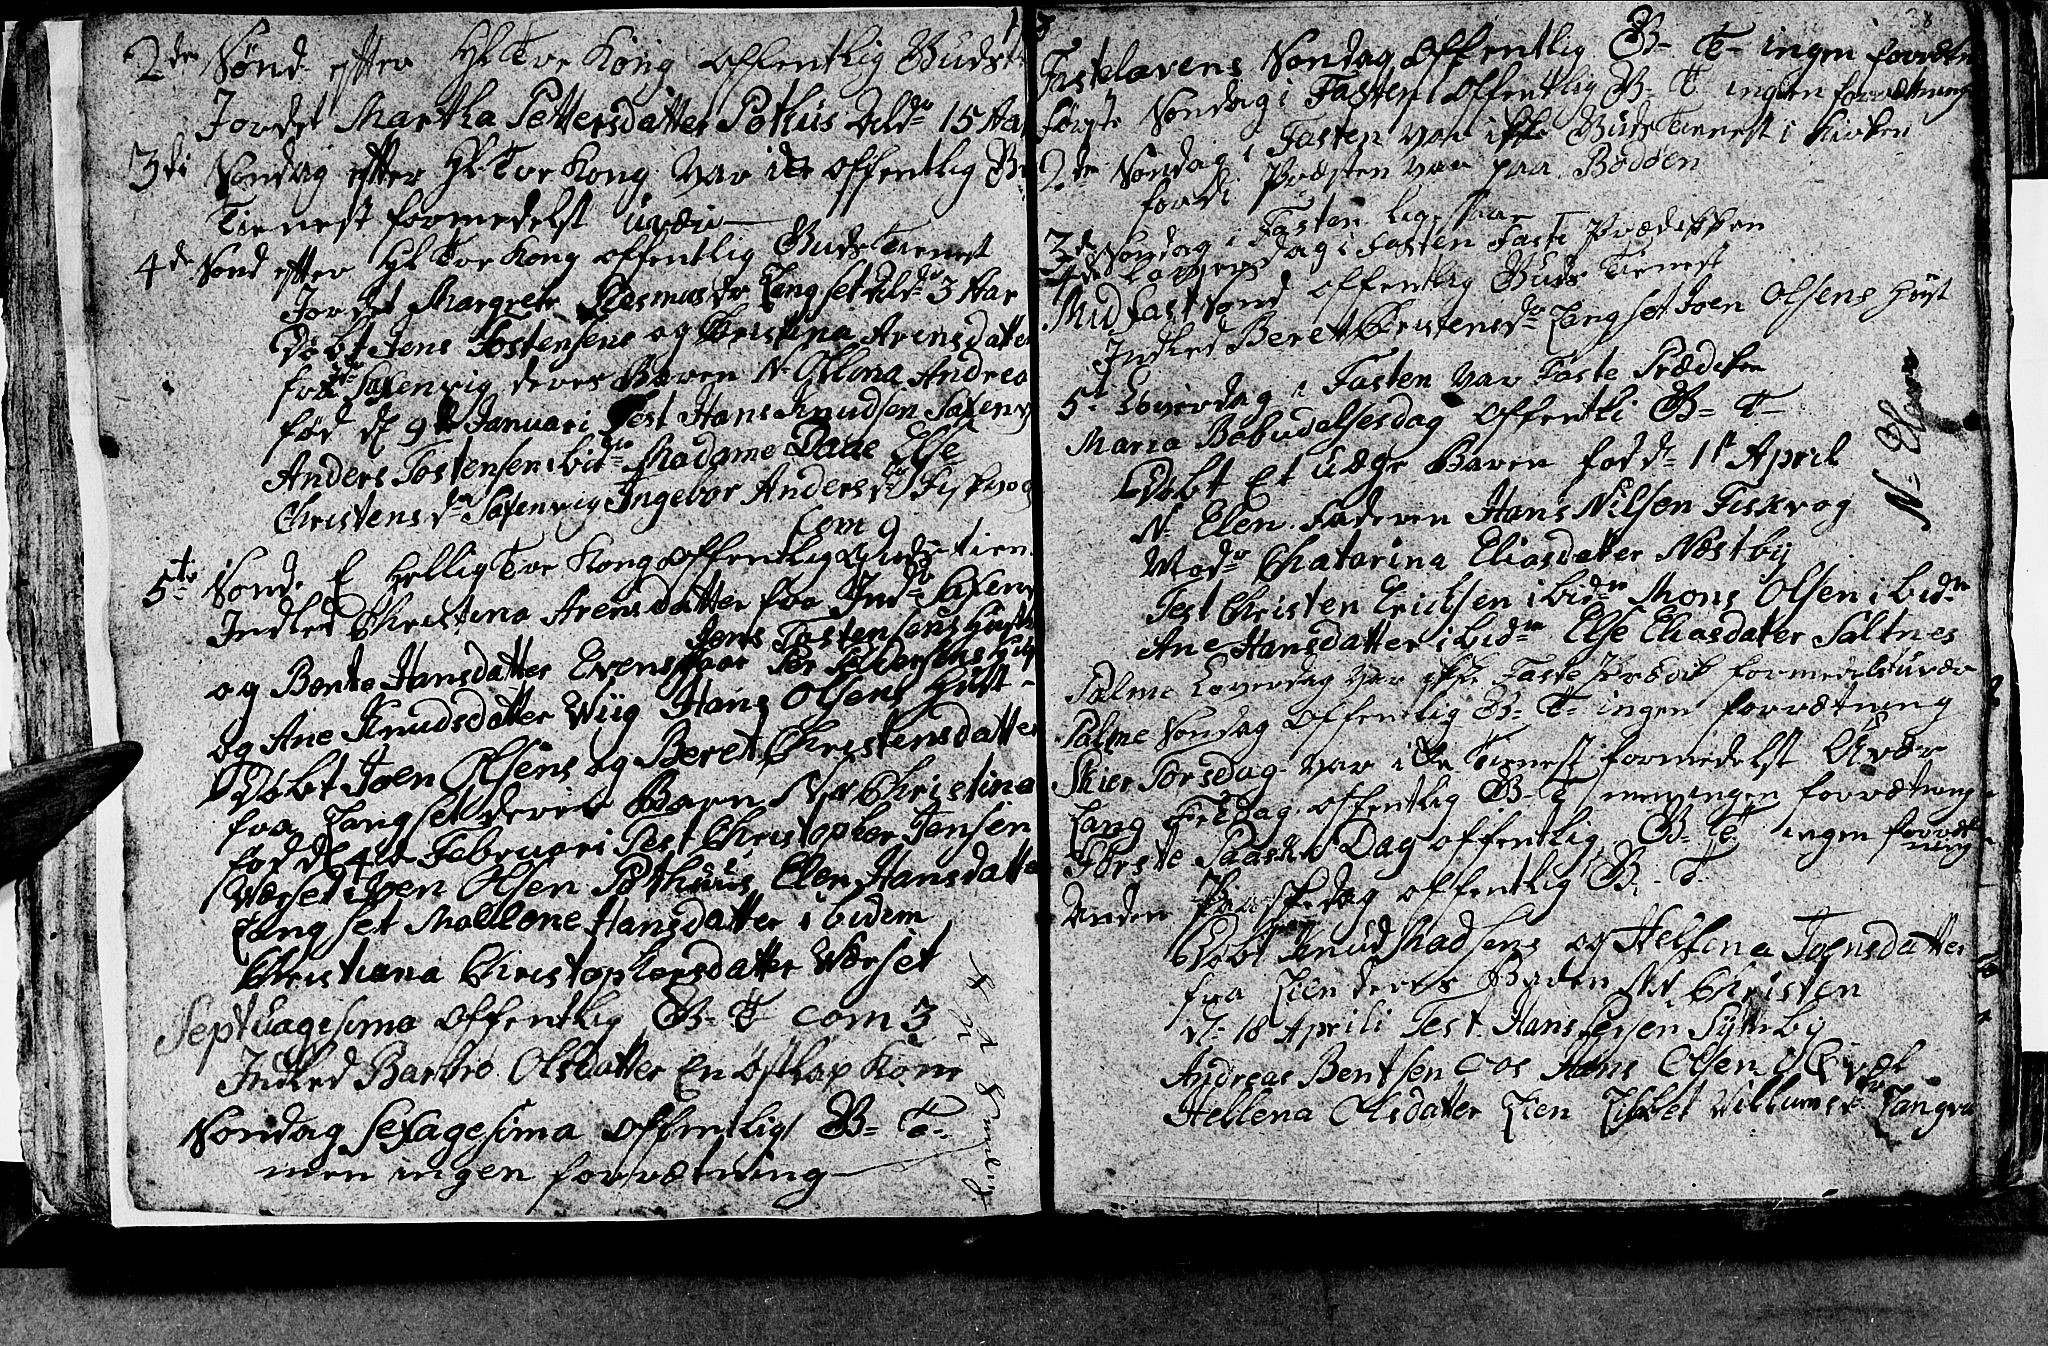 2den Sønd. efter Hl Tre Kong offentlig Guds
Jordet Martha Pettersdatter Pothus Ald: 15 Aar
3die Søndag efter Hl Tre Kong var icke offentlig
Tienest formedelst uveir
4de Sønd efter Hl Tre Kong offentlig Guds Tienest
Jordet Margrete Rasmusdr Langset Ald: 3 Aar
Døbt Jens Tostensens og Christina Arensdatter
fra Saxenvig deres Barn N. Ellona Andrea
fød d 9de Januari Test Hans Knudsen Saxenv
Anders Tostensen ibid Madame Daae Else
Christensdr Saxenvig Ingebor Andersdr Fiskvog
Com 9
5te Sønd. E Hellig Tre Kong offentlig Guds tien
Indled Christina Arensdatter fra Ind: Saxenv
Jens Tostensens Hust
og Bente Hansdatter Evensgaar Per Pedersens Hus
og Ane Knudsdatter Wiig Hans Olsens Hust
Døbt Joen Olsens og Beret Christensdatter
fra Langset deres Barn N Christina
fød d 4de Februari Test Christopher Jensen
Værset Iver Olsen Pothuus Elen Hansdatter
Langset Mallene Hansdatter ibidem
Christiana Christophersdatter Værset
Septuagesima offentlig G- T- Com 3
Indled Barbro Olsdatter En Kone
Søndag Sexagesima offentlig G- T-
men ingen forrætning
38
Fastelavens Søndag offentlig G- T- ingen forrætn
Første Søndag i Fasten offentlig G- T ingen forrætning
2den Søndag i Fasten var icke Guds Tienest i Kirken
fordi Præsten var paa Bodøen
3d Søndag i Fasten ligesaa
4de Løverdag i Fasten Faste Prædicken
Midfast Sønd offentlig Guds Tienest
Indled Beret Christensdr Langset Joen Olsens Hust
5t Løverdag i Fasten var Faste Prædiken
Maria Bebudelsesdag offentli G- T-
Døbt Et uægte Barn fød d. 1st April
N. Elen. Faderen Hans Nilsen Fiskvog
Modr Chatarina Eliasdatter Næstby
Test Christen Erichsen ibidm Mons Olsen ibidm
Ane Hansdatter ibidm Else Eliasdater Saltnes
N. Elen
Palme Løverdag var icke Faste Prædik formedelst uvær
Palme Søndag offentlig G- T- ingen forrætning
Skier Torsdag var icke Tienest formedelst Uvær
Lang Fredag offentlig G- T men ingen forrætning
Første Paaske Dag offentlig G- T ingen forræt
ning
Anden Paaskedag offentlig G- T-
Døbt Knud Madsens og Hellena Joensdatter
fra Lien deres Barn N Christen
d. 18 Aprili Test. Hans Persen
Andreas Bentsen Hans Olsen
Hellena Olsdatter Lien Lisbet Villumsdr Langv